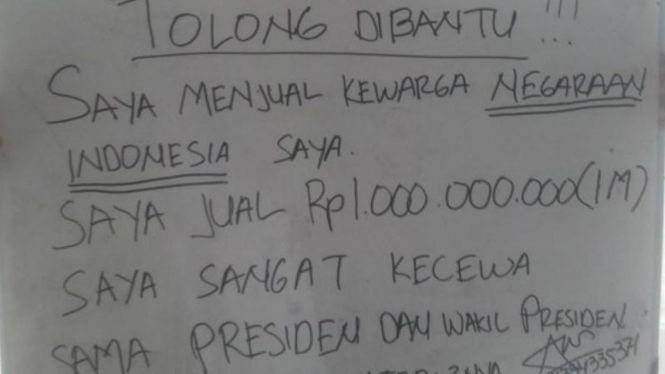 TOLONG DIBANTU !!!
SAYA MENJUAL KEWARGA NEGARAAN
INDONESIA SAYA.
SAYA JUAL Rp1.000.000.000(1M)
SAYA SANGAT KECEWA
SAMA PRESIDEN DAN WAKIL PRESIDEN.